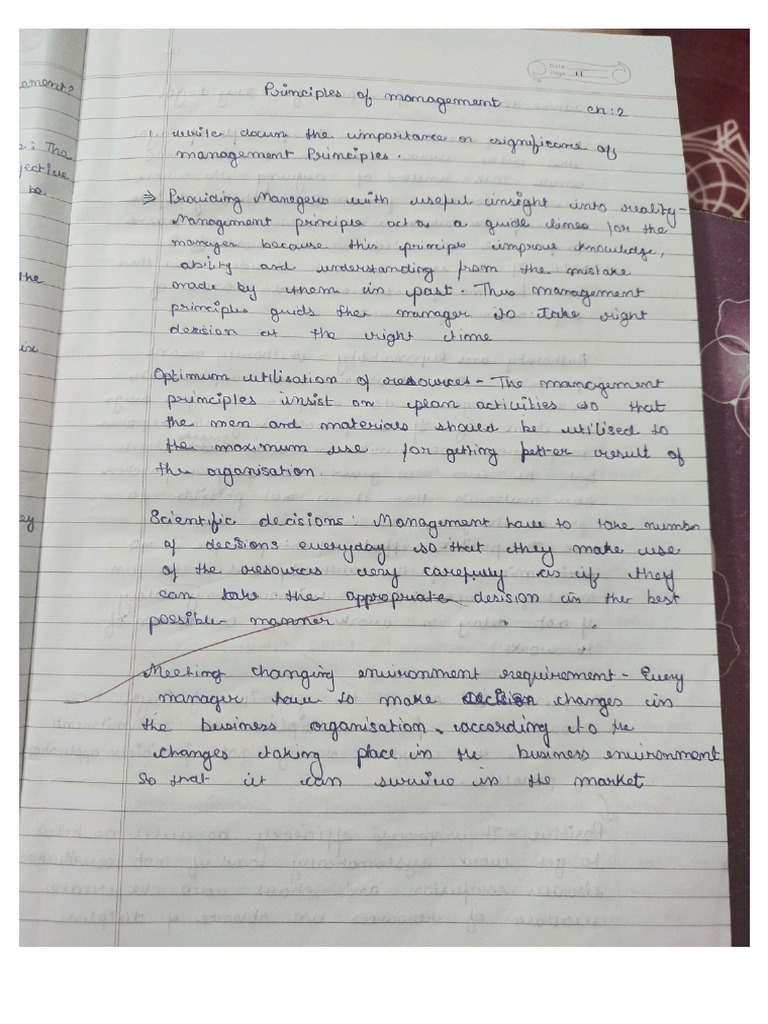 Date
Page 11
Principles of management ch:2
1. write down the importance or significans of
management Principles.
⇒ Providing Managers with useful insight into reality -
Management principle act as a guide lines for the
manager because this principle improve knowledge,
ability and understanding from the mistake
made by them in past. Thus management
principles guids the manager to take right
decision at the right time
Optimum utilisation of resources - The management
principles insist on plan activities so that
the men and materials should be utilised to
the maximum use for getting better result of
the organisation
Scientific decisions: Management have to take number
of decisions everyday so that they make use
of the resources very carefully as if they
can take the appropriate desision in the best
possible manner
Meeting changing environment requirement - Every
manager have to make decision changes in
the business organisation, according to the
changes taking place in the business environment
So that it can survive in the market
ement?
: The
jective
be
the
ey